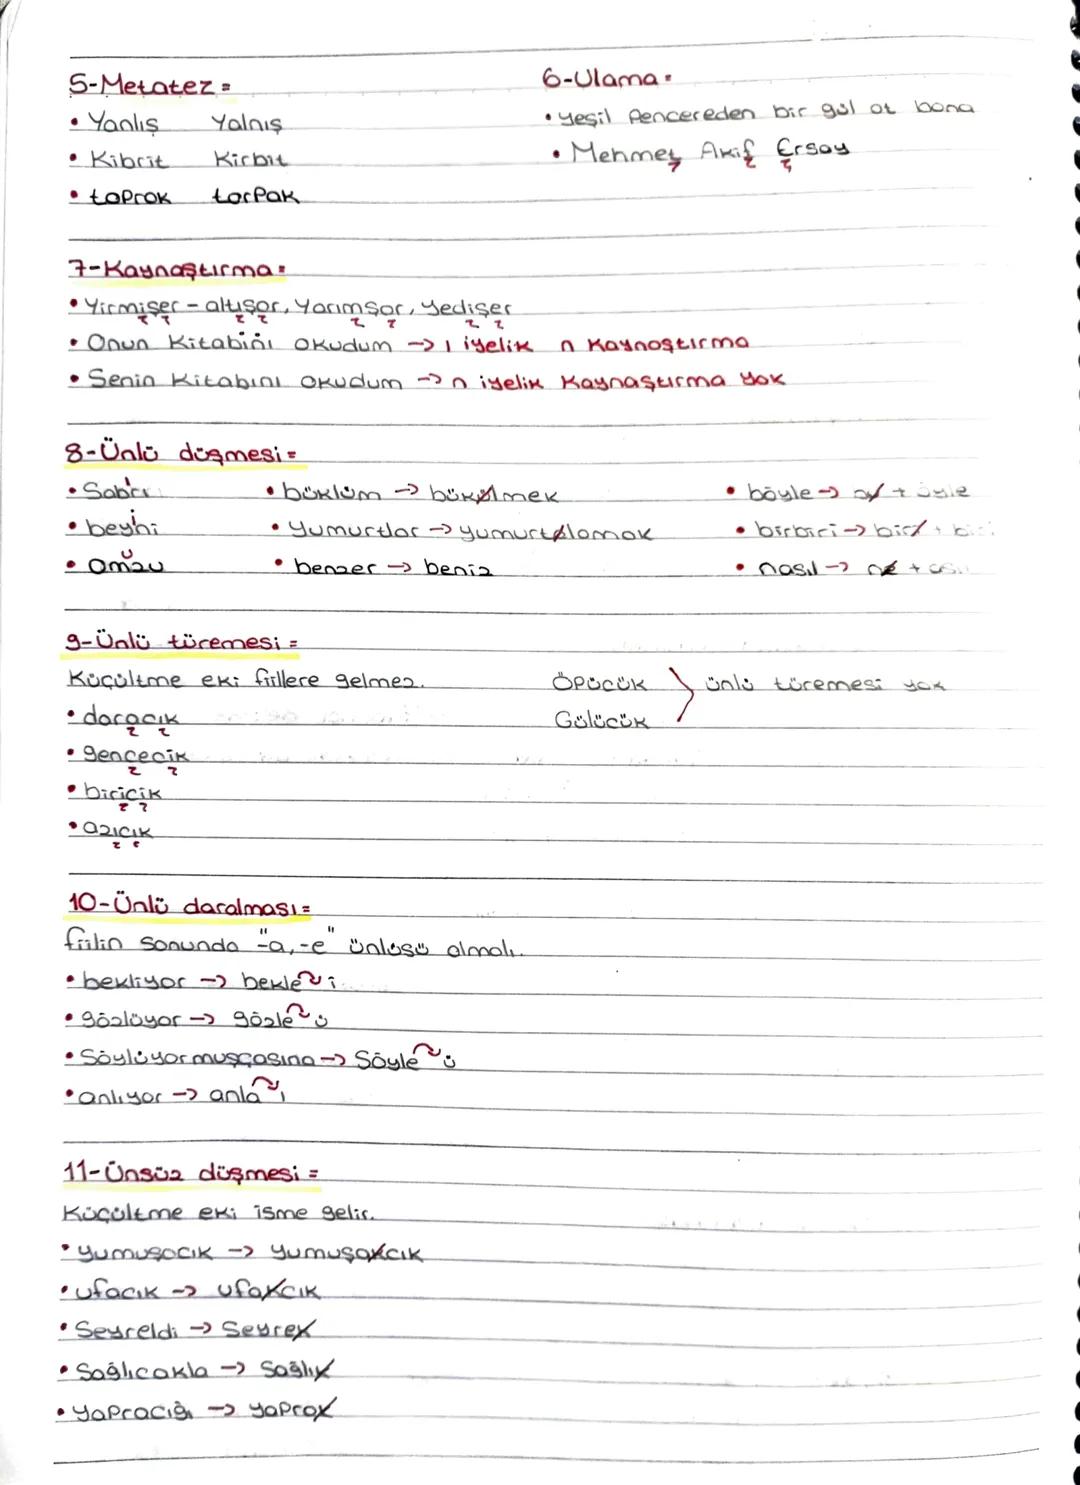 5-Metatez =
• Yanlış Yalnış
• Kibrit Kirbit
• toprak torpak
6-Ulama =
• Yeşil pencereden bir gül at bana
• Mehmet Akif Ersoy
7-Kaynaştırma =
• Yirmişer - altışar, Yarımşar, Yedişer
• Onun Kitabını okudum → ı iyelik n Kaynaştırma
• Senin Kitabını okudum → n iyelik Kaynaştırma yok
8-Ünlü düşmesi =
• Sabrı • büklüm → bükülmek • böyle → o + öyle
• beyni • Yumurtlar → yumurtalamak • birbiri → biri + biri
• Omzu • benzer → beniz • nasıl → ne + asıl
9-Ünlü türemesi =
Küçültme eki fiillere gelmez.
• daracık
• gencecik
• biricik
• azıcık
Öpücük
Gülücük
ünlü türemesi yok
10-Ünlü daralması =
fiilin sonunda "-a, -e" ünlüsü olmalı.
• bekliyor → bekle i
• gözlüyor → gözle ü
• Söylüyormuşçasına → Söyle ü
• anlıyor → anla ı
11-Ünsüz düşmesi =
Küçültme eki isme gelir.
• yumuşacık → yumuşakcık
• ufacık → ufakcık
• Seyreldi → Seyrek
• Sağlıcakla → Sağlık
• yapracığı → yaprak